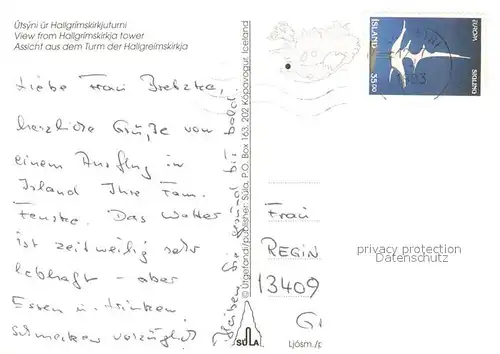 Útsýni úr Hallgrímskirkjuturni
View from Hallgrímskirkja tower
Assicht aus dem Turm der Hallgreímskirkja
Liebe Frau Bretzke,
herzliche Grüße von
einem Ausflug in
Island Ihre Fam.
Fenske. Das Wetter
ist zeitweilig sehr
lebhaft - aber
Essen u. trinken
schmecken vorzüglich
Bleiben Sie gesund bis bald.
© Útgefandi/publisher: Sula, P.O. Box 163, 202 Kópavogur, Iceland
SULA
ÍSLAND
EUROPA
35.00
1993
Frau
REGIN
13409
privacy protection
Datenschutz
Ljósm./p